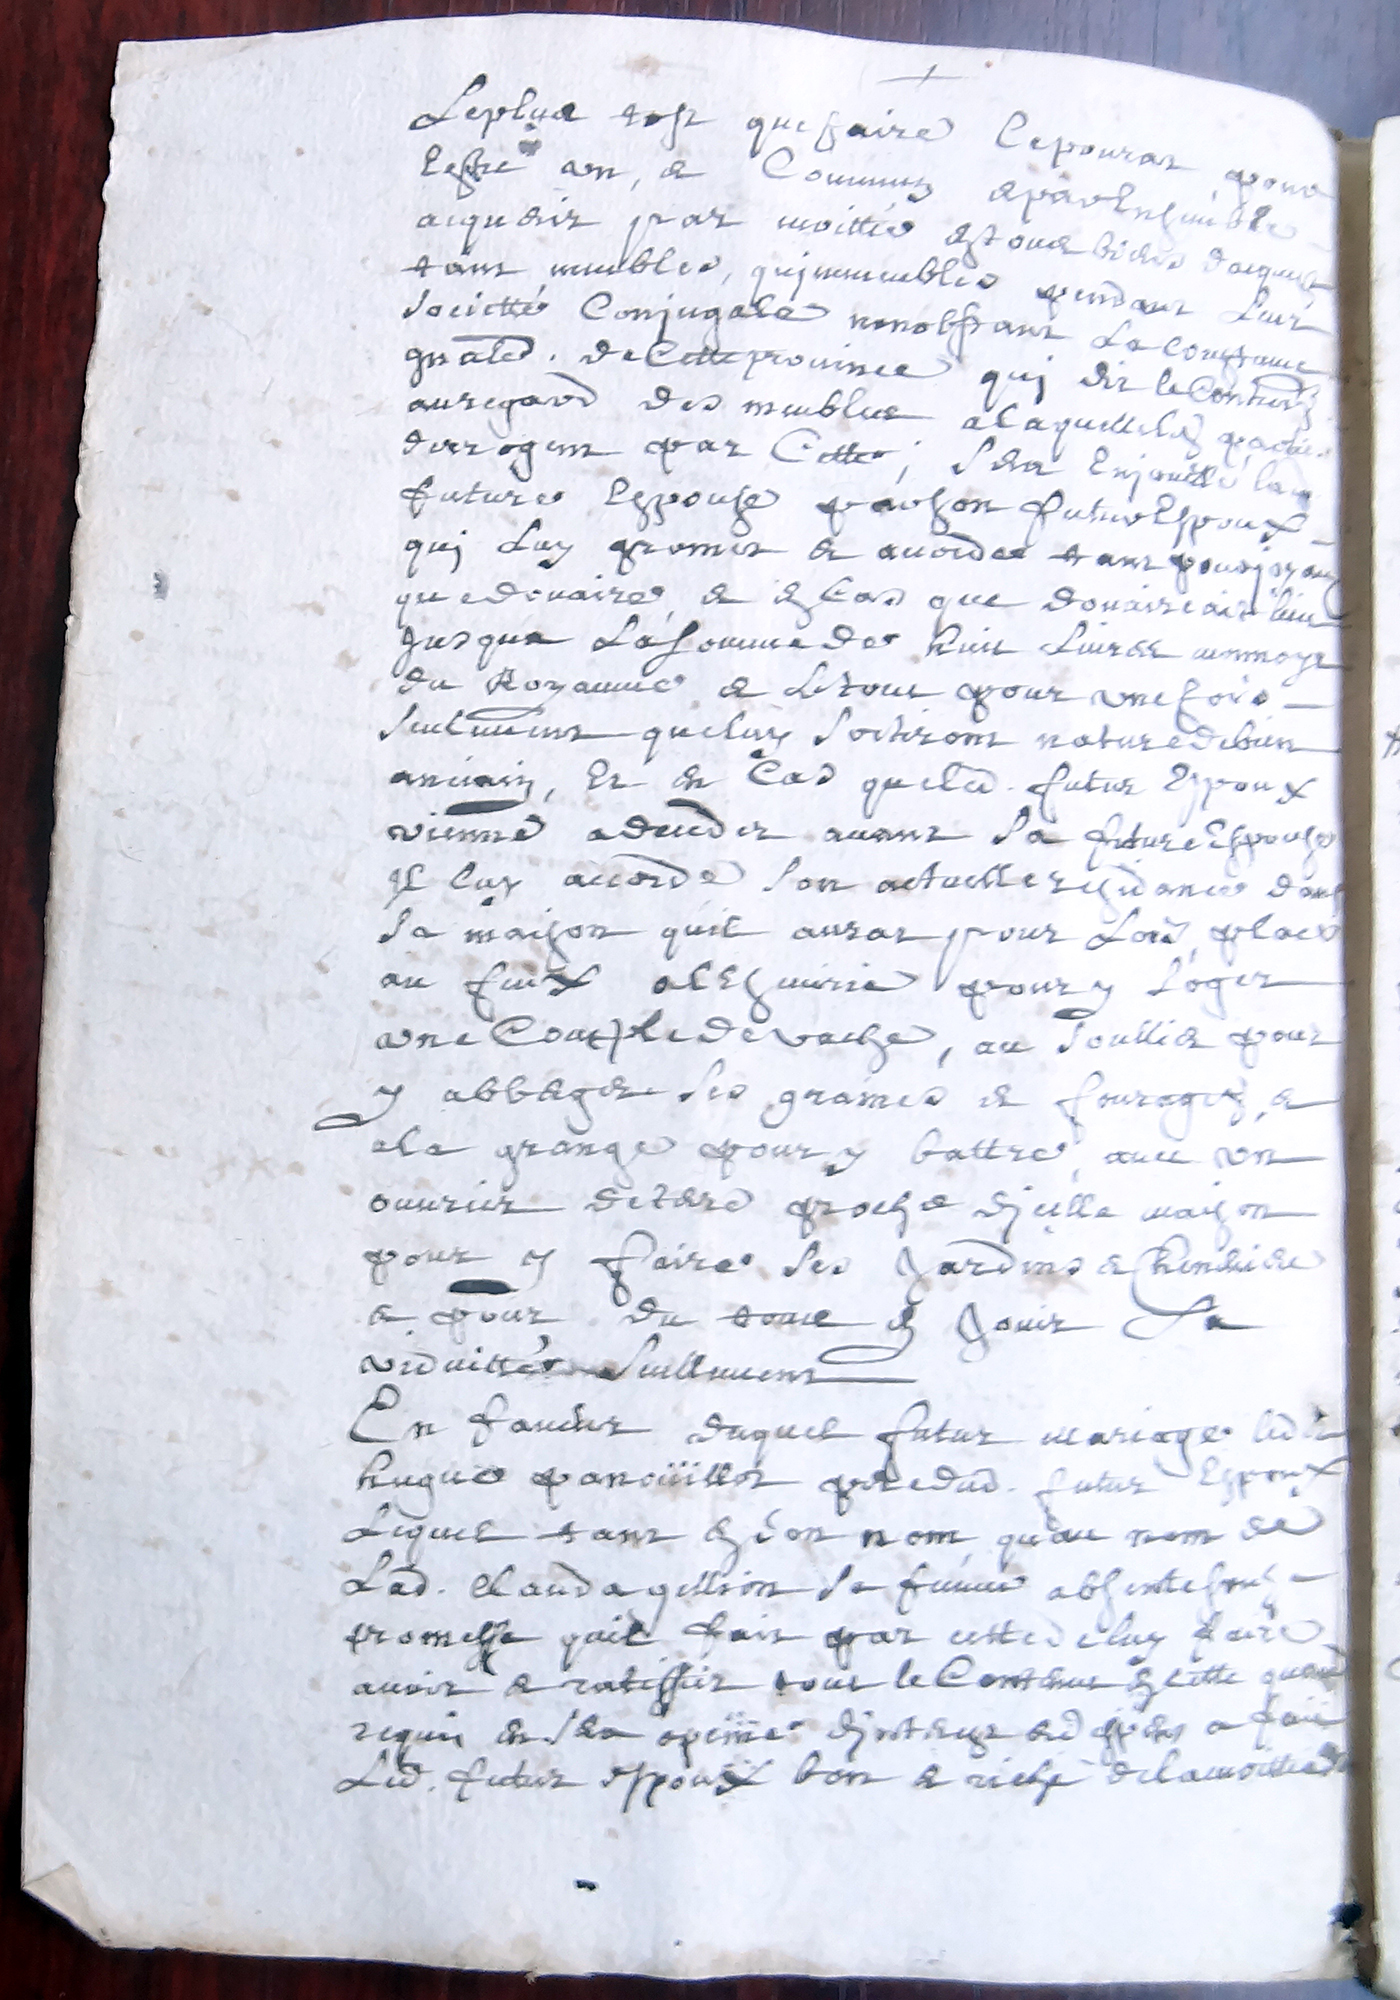 Leplus tost que faire lepourat pour
Estre un, et Communs separ Ensemble
acquerir par moittié Estous biens dacquest
tant meubles, quimmeubles pendant Leur
Societté Conjugale nonobstant La Coustume
gnale. de Cette province qui dit le Contraire
auregard des meubles alaquelleles parties
derrogent par Cette, Sera Enjouëllé lad.
future Espouse parson futur Espoux
qui Luy promet et accorde tant pour joyaux
que douaire, et En Cas que douaire ait lieu
Jusqua La Somme de huit Livres monnoye
du Royaume et Letout pour une fois
Seulement queluy Sortiront nature debien
ancien, Et en Cas queled. futur Espoux
vienne a deceder avant Sa future Espouse
Il luy accorde Son actuelle residance dans
Sa maison quil aurat pour Lors, place
au feux alEscuirie pour y Loger
une Couple de vache, au Soullier pour
y abbeger Ses graines et fourages, et
ala grange pour y battre, avec un
ouvrier deterre proche dicelle maison
pour y faire Ses Jardins et Cheneviere
et pour du tout En Jouir Sa
viduitté Seullement
En faveur duquel futur mariage led.
hugue panoüillot pere dud. futur Espoux
Lequel tant En Son nom qu'au nom de
Lad. Clauda gillion Sa femme absente Sous
promesse quil fait par cette de luy faire
avoir et ratiffier tout le Contenus En cette quand
requis En Sera a fait
Led. futur Espoux bon et riche delamoittié